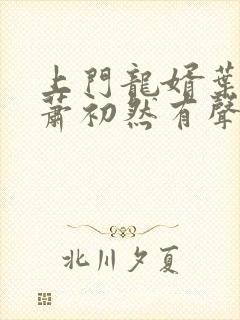 上門龍婿葉
蕭初然有聲
北川夕夏